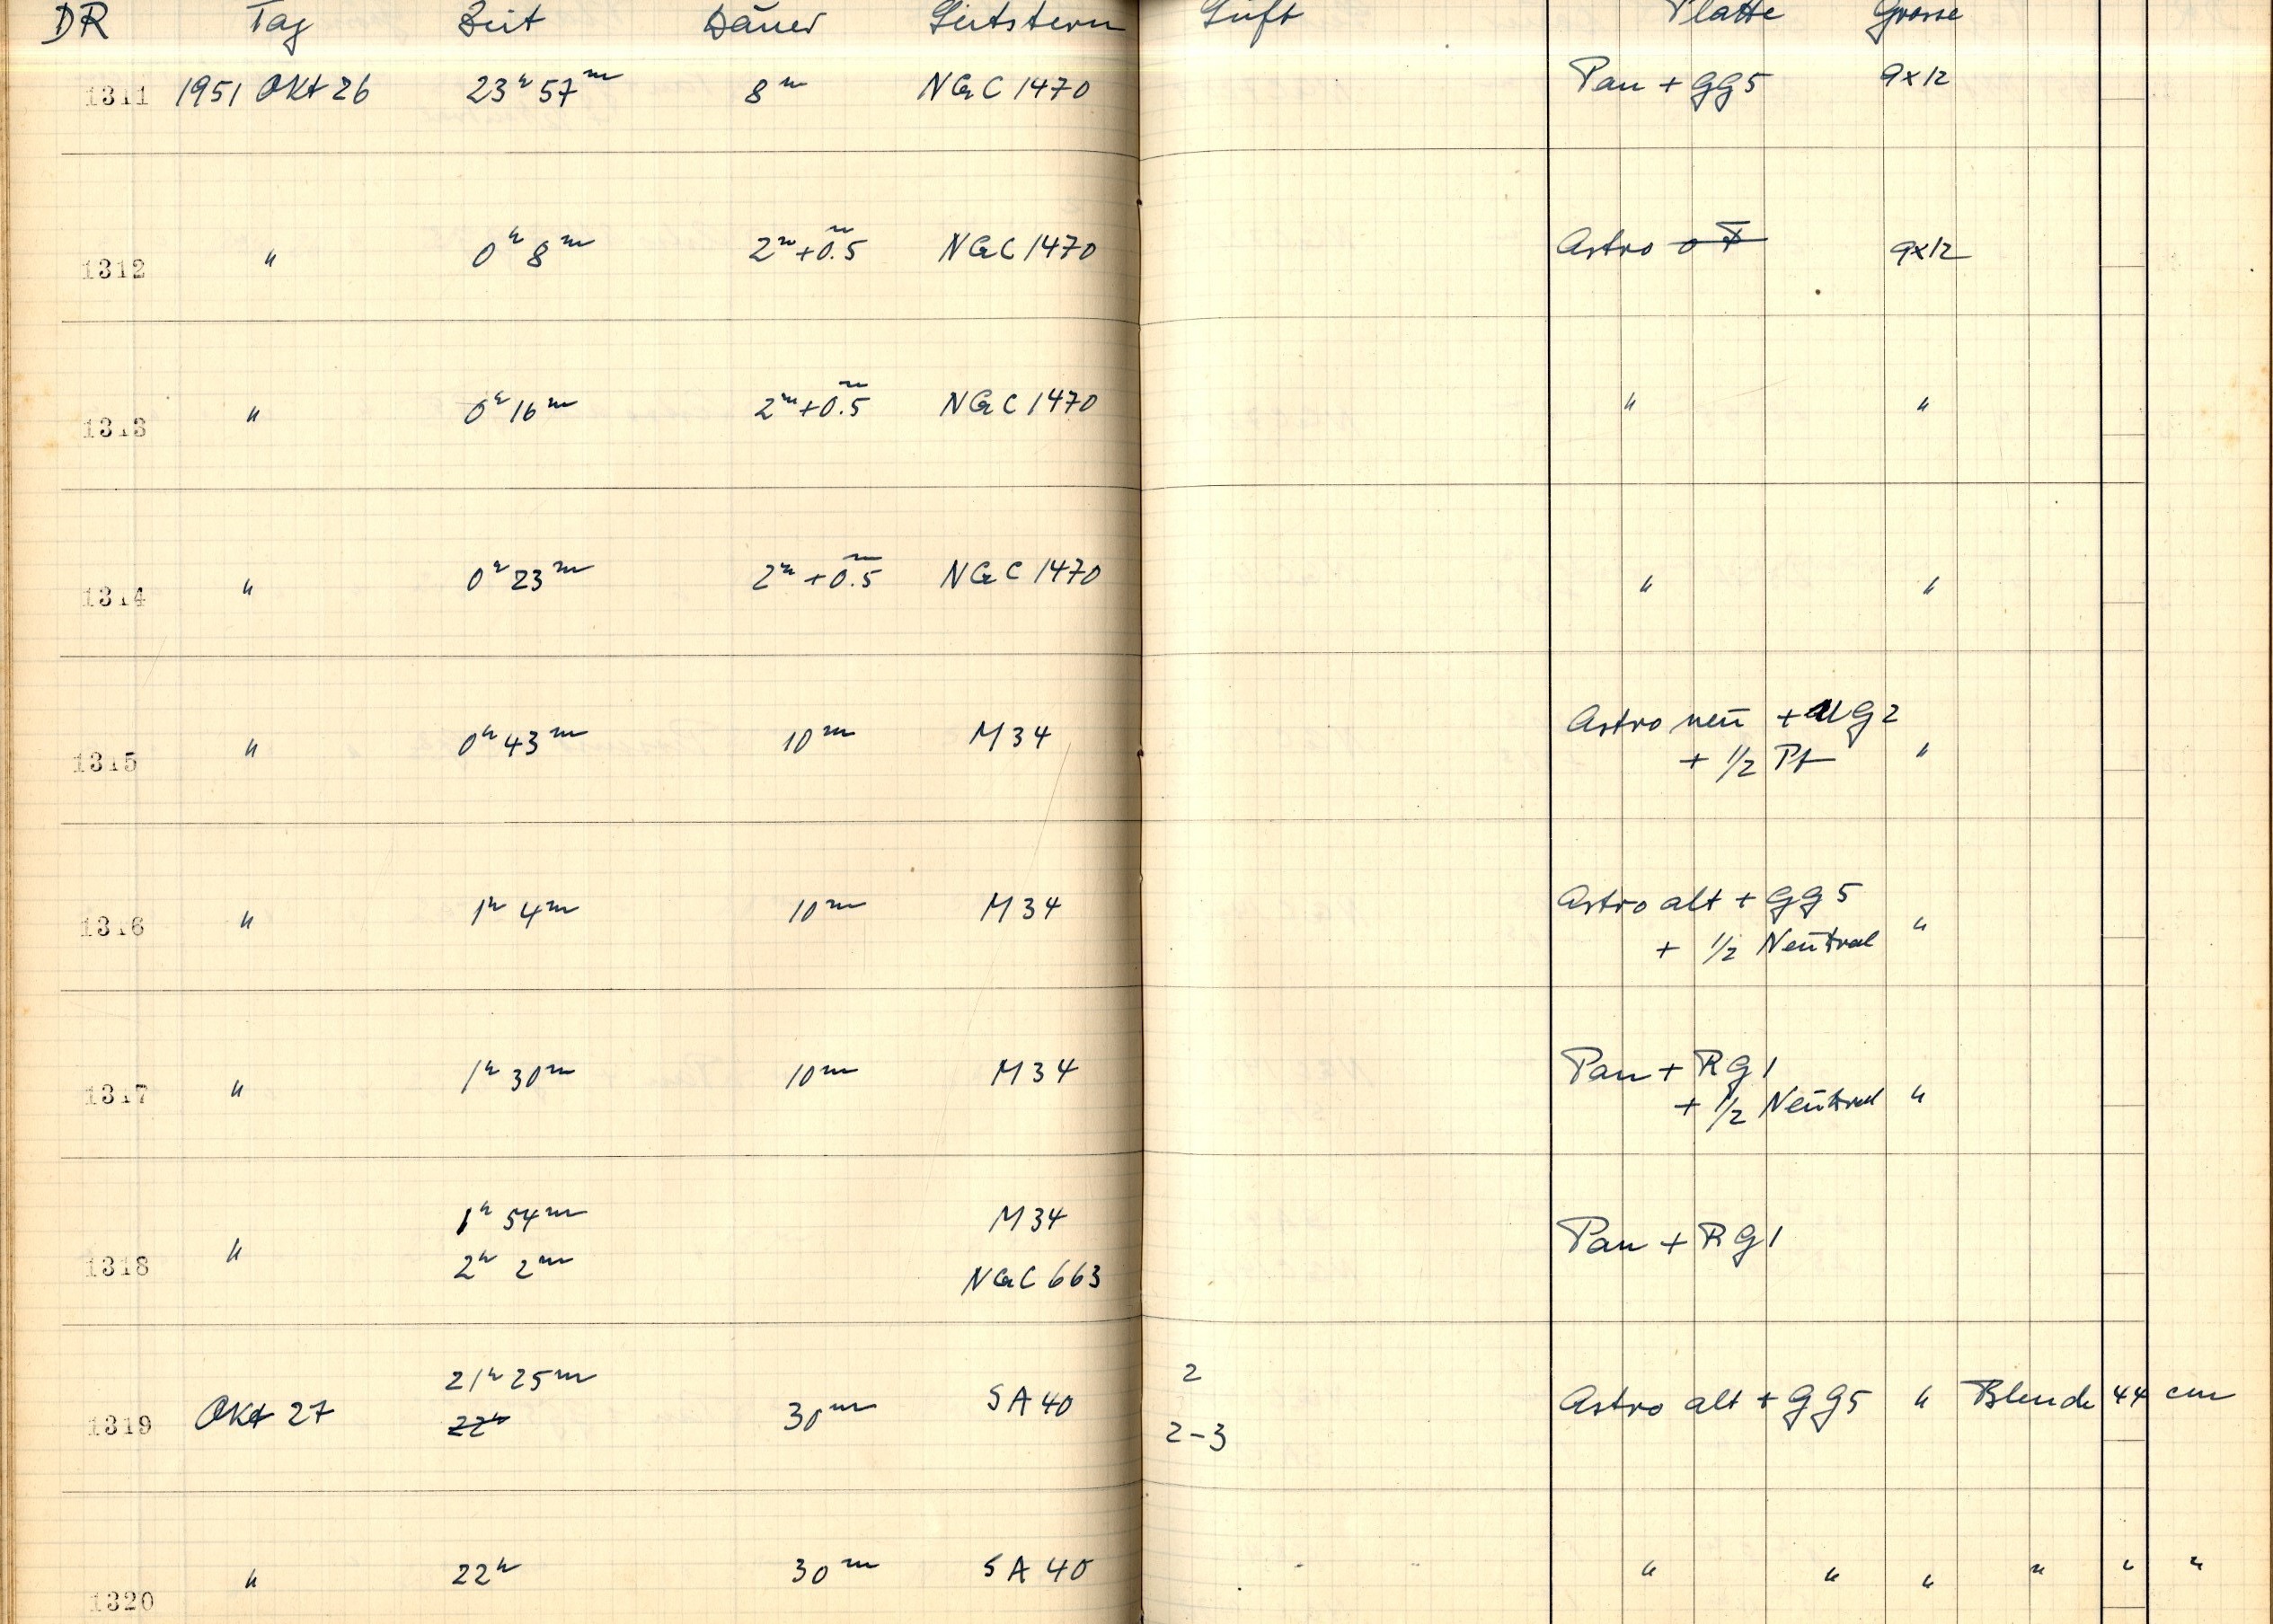 DR Tag Zeit Dauer Leitstern Luft Platte Grösse
1311 1951 Okt 26 23h 57m 8m NGC 1470 Pan + GG5 9x12
1312 " 0h 8m 2m+0.5m NGC 1470 Astro 9x12
1313 " 0h 16m 2m+0.5m NGC 1470 " "
1314 " 0h 23m 2m+0.5m NGC 1470 " "
1315 " 0h 43m 10m M 34 Astro neu + UG2
+ 1/2 Pt "
1316 " 1h 4m 10m M 34 Astro alt + GG5
+ 1/2 Neutral "
1317 " 1h 30m 10m M 34 Pan + RG1
+ 1/2 Neutral "
1h 54m M 34
1318 " 2h 2m NGC 663 Pan + RG1
21h 25m 2
1319 Okt 27 22h 30m SA 40 Astro alt + GG5 " Blende 44 cm
2-3
1320 " 22h 30m SA 40 " " " " " "